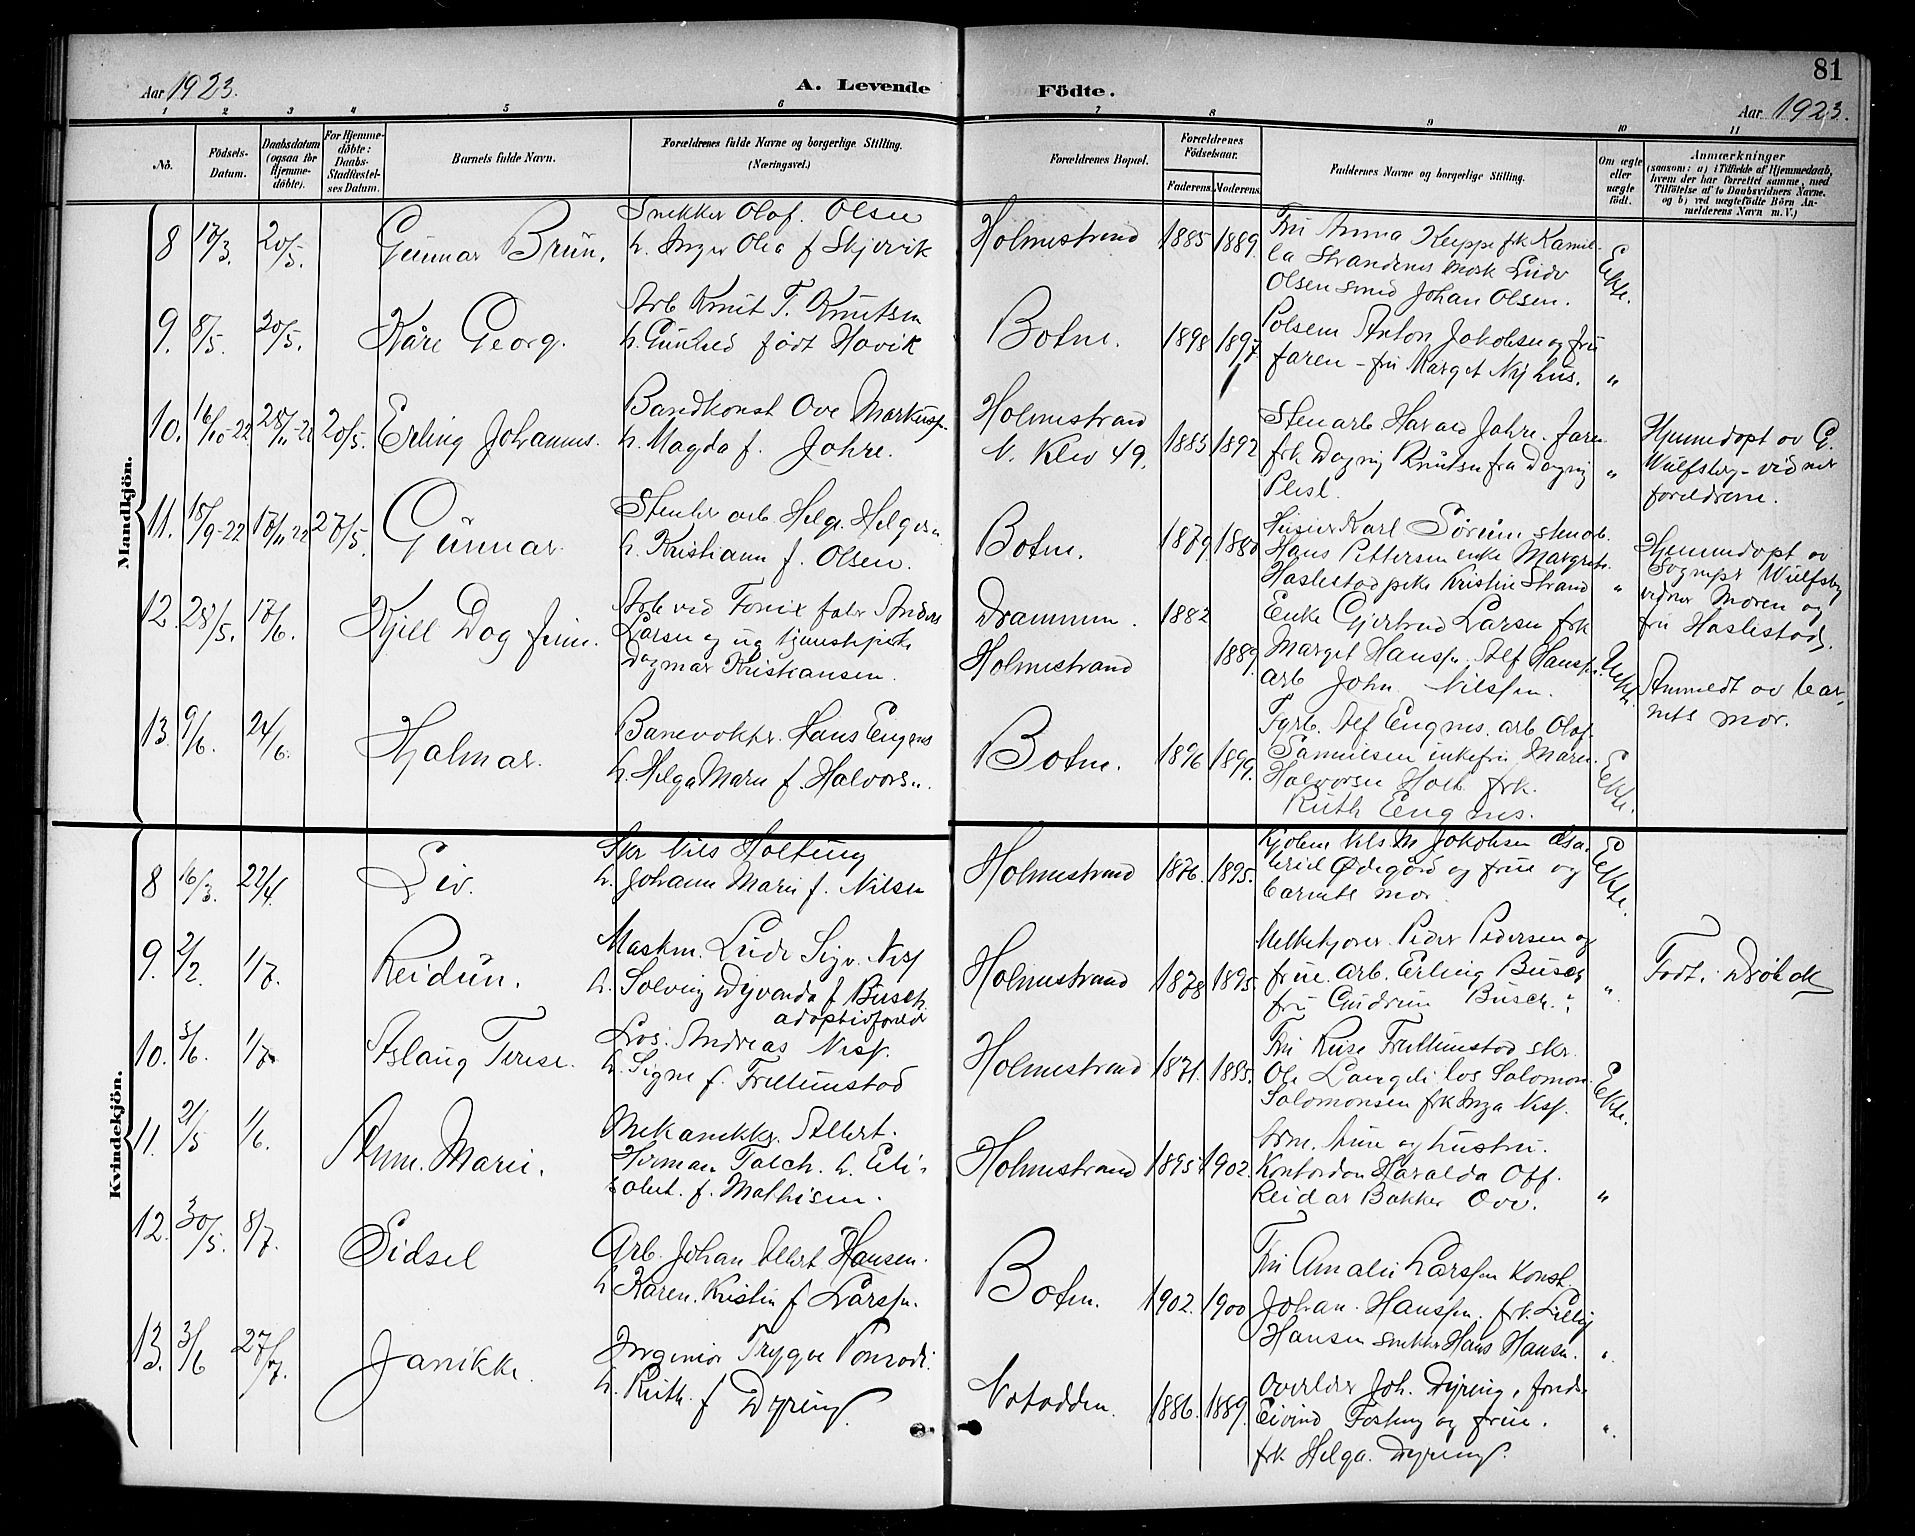 81
Aar 1923.
A. Levende
Födte.
Aar 1923.
1 2 3 4 5 6 7 8 9 10 11
No.
Födsels-Datum.
Daabsdatum (ogsaa for Hjemme-döbte).
For Hjemme-döbte: Daabs-Stadfæstel-ses Datum.
Barnets fulde Navn.
Forældrenes fulde Navne og borgerlige Stilling. (Næringsvei.)
Forældrenes Bopæl.
Forældrenes Födselsaar.
Faderens. Moderens.
Faddernes Navne og borgerlige Stilling.
Om ægte eller uægte födt.
Anmærkninger
(saasom: a) i Tilfælde af Hjemmedaab,
hvem der har forrettet samme, med
Tilföielse af to Daabsvidners Navne,
og b) ved uægtefödte Börn An-
melderens Navn m. V.)
Mandkjön.
8 17/3. 20/5. Gunnar Brun.
Snekker Olaf Olsen
h. Inger Olea f Skjervik
Holmestrand 1885 1889.
Fru Anna Keippe frk Kamil-
la Strandenes mask Ludv
Olsen smed Johan Olsen.
Ekte.
9. 8/5. 20/5. Kåre Georg.
Arb Knut T. Knutsen
h. Gunhild født Hovik
Botne. 1898 1897
Anton Jakobsen og fru
faren - fru Marget Nyhus. "
10. 16/10-22 28/11-22 20/5. Erling Johannes.
Ove Markuss.
h. Magda f. Jahre.
Holmestrand
N. Klev 49. 1885 1892
Stenarb Harald Jahre. faren
frk Dagny Knutsen fra Dagny
"
Hjemmedøpt av G.
Wulfsberg - vidner
foreldrene.
11. 15/9-22 17/11-22 27/5. Gunnar
arb Helge Helgesen
h. Kristiane f. Olsen.
Botne. 1879. 1880
Karl Sørum stenarb.
Hans Pettersen enke Margrete
Haslestad pike Kristine Strand "
Hjemmedøpt av
Sognepr Wulfsberg
vidner Moren og
fru Haslestad.
12. 28/5. 17/6. Kjell Dag Finn.
Arb ved Fønix fabr Anders
Larsen og ug tjenestepike
Dagmar Kristiansen.
Drammen. 1882
Holmestrand 1889.
Enke Gjertrud Larsen frk
Marget Hanssen. Alf Hanssen.
arb John Nilssen.
Uekte.
Anmeldt av bar-
nets mor.
13. 9/6. 24/6. Hjalmar.
Banevokter. Hans Engenes
h. Helga Marie f. Halvorsen.
Botne. 1896 1899.
Fyrb. Alf Engnes. arb Olaf
Samuelsen enkefru Maren
Halvorsen Holt. frk.
Ruth Engnes.
Ekte.
Kvindekjön.
8 16/3. 22/4. Liv.
Skr Nils Holtung
h. Johanne Marie f. Nilsen
Holmestrand 1876. 1895.
Kjøbm Nils M Jakobsen
Ødegård og frue og
barnets mor.
Ekte.
9. 2/2. 1/7. Reidun.
Maskm. Ludv Sigv. Niss
h. Solveig Dyvenda f Busch
adoptivforeldr
Holmestrand 1878 1895.
Melkekjører Peder Pedersen og
frue. arb. Erling Busch
fru Gudrun Busch. "
Født: Drøbak
10. 3/6. 1/7. Aslaug Terese.
Los. Andreas Niss.
h. Signe f. Frellumstad
Holmestrand 1871. 1885.
Fru Frellumstad skr.
Ole Langeli los Salomon
Salomonsen frk Inga Niss.
Ekte.
11. 21/5 1/6. Anne Marie.
Mekanikker. Albert
Herman Falch. h. Eli-
sabet f. Mathisen.
Holmestrand 1895 1902.
og hustru.
Haralda Off.
Reidar Bakker Ove. "
12. 30/5. 8/7. Sidsel
Arb. Johan Albert Hansen.
h Karen Kristin f Larssen.
Botne. 1902. 1900
Fru Amalie Larssen Konst.
Johan Hanssen. frk. Lilly
Hansen snekker Hans Hansen. "
13. 3/6 27/7. Janikke.
Ingeniør Trygve
h. Ruth f Dyring.
Notodden. 1886. 1889.
Overlærer Joh. Dyring,
Eivind og frue.
frk Helga Dyring. "